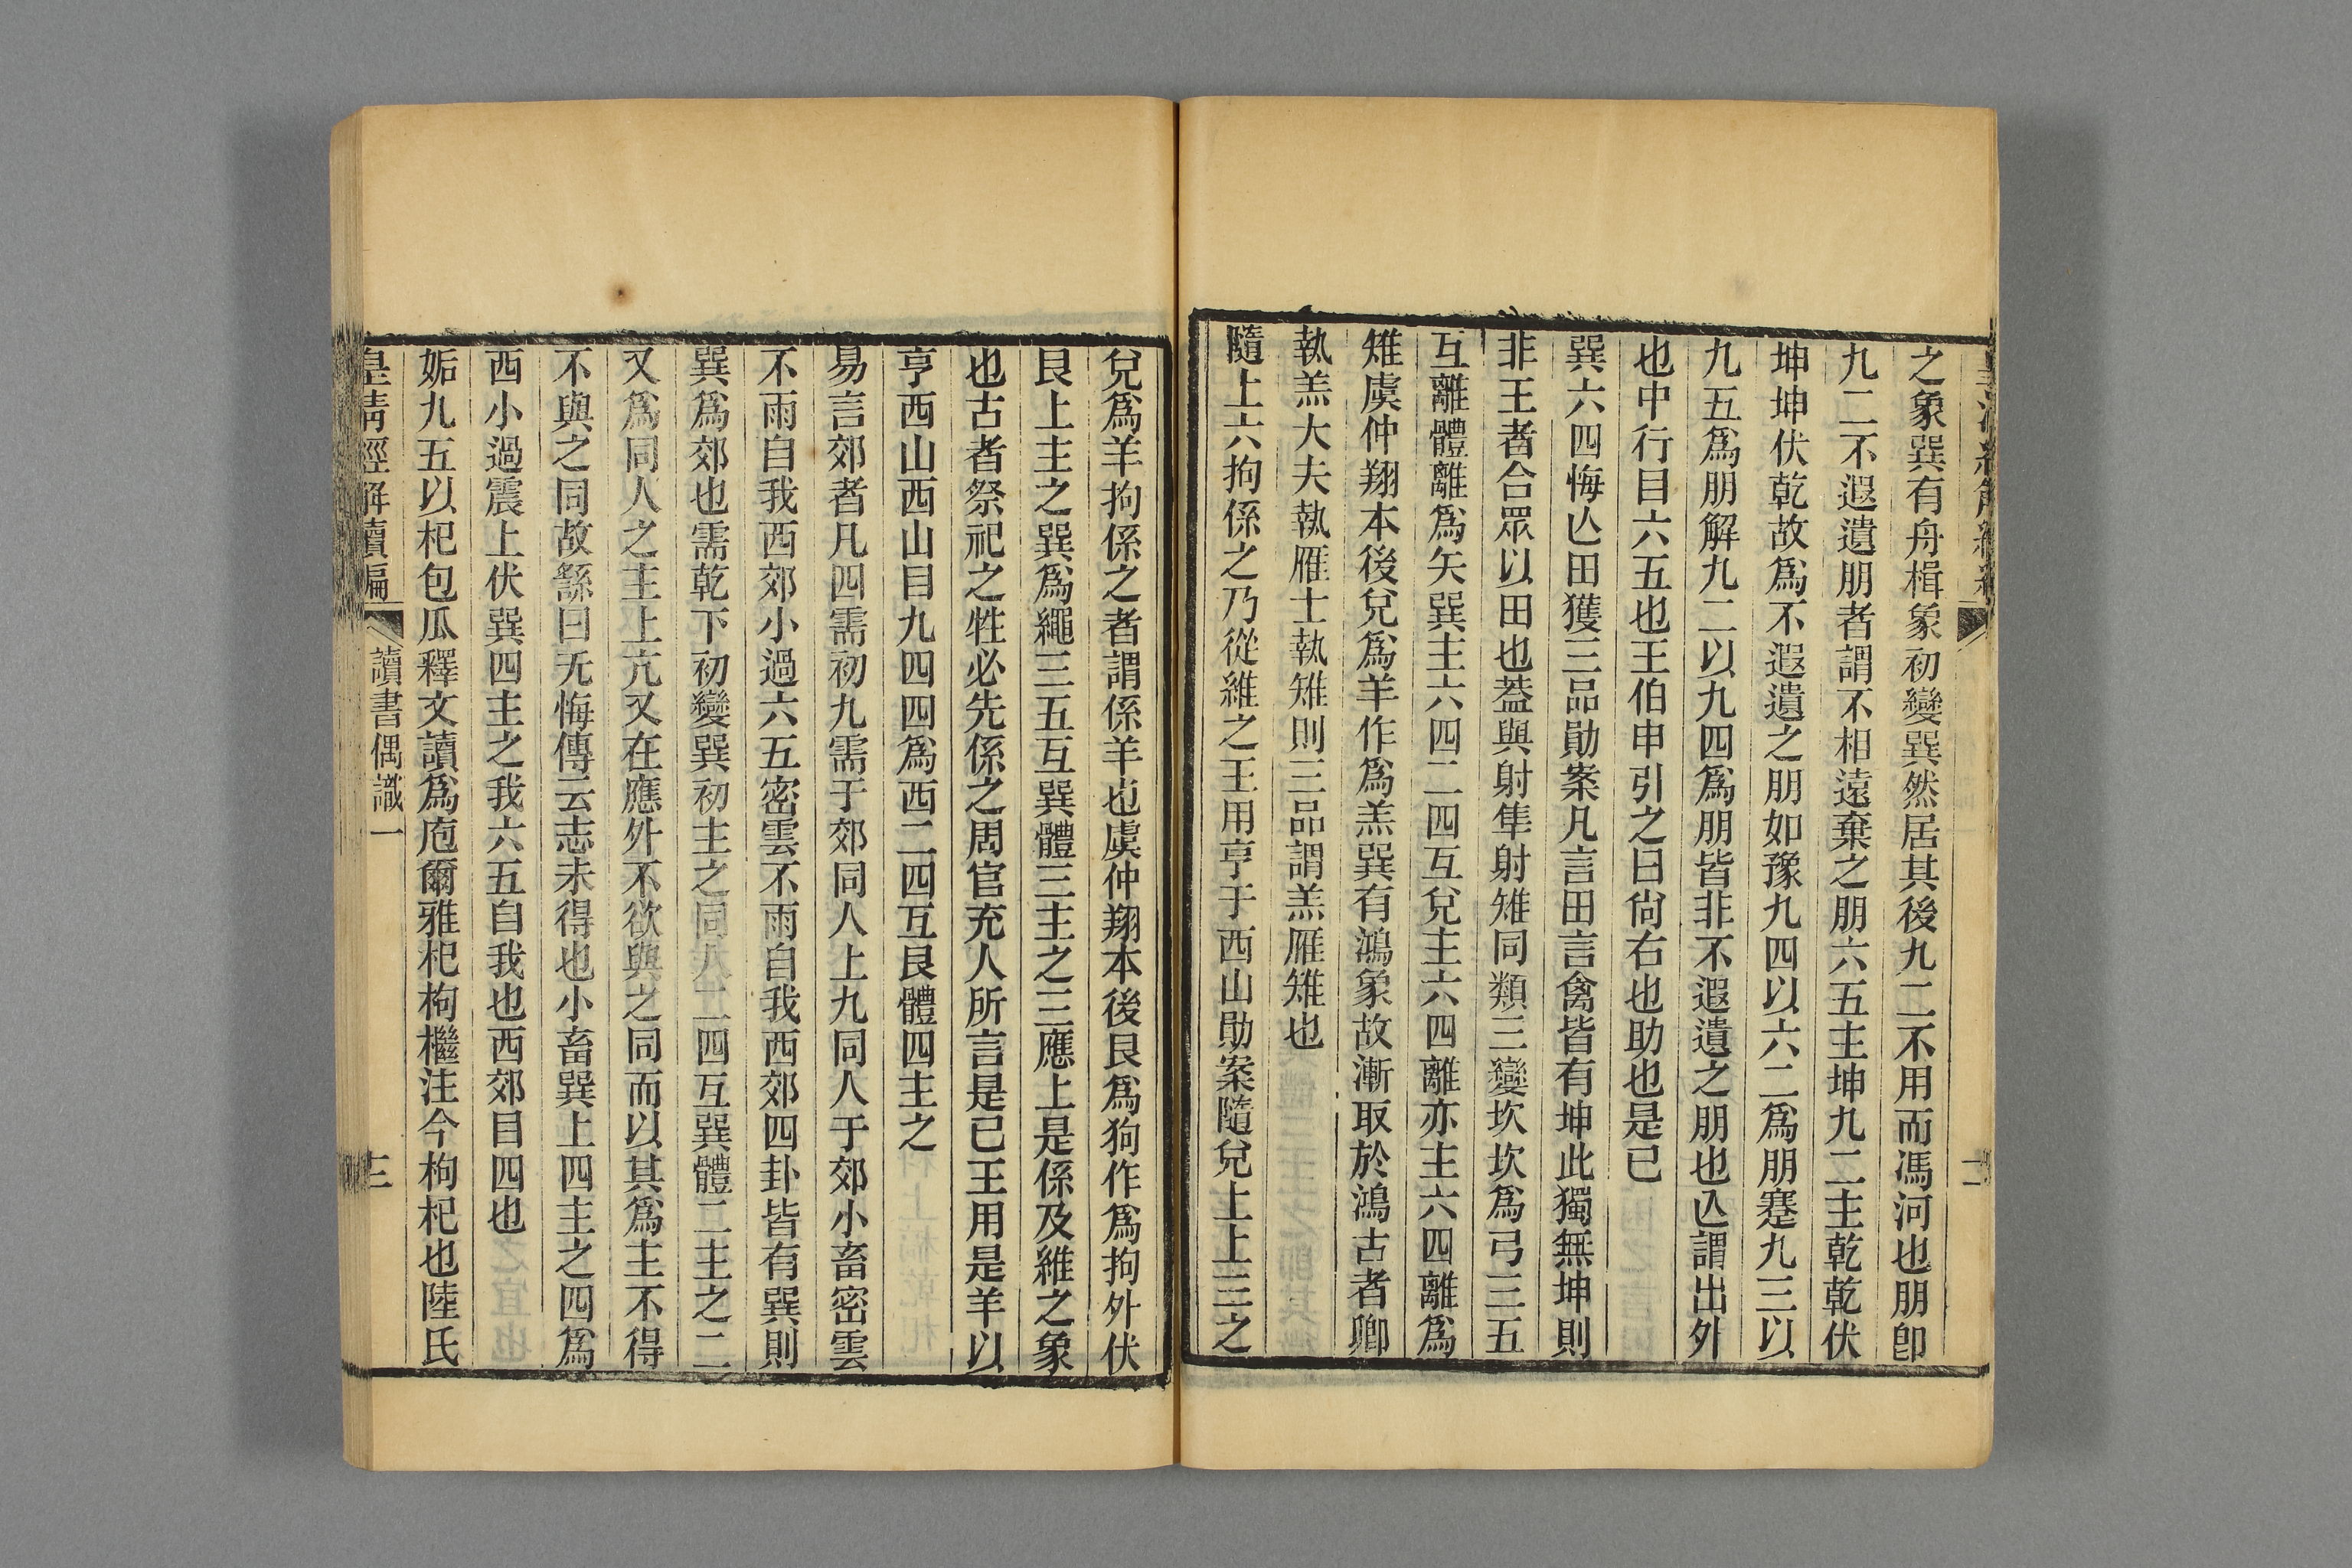 之象巽有舟楫象初變巽然居其後九二不用而馮河也朋卽
九二不遐遺朋者謂不相遠棄之朋六五主坤九二主乾乾伏
坤坤伏乾故爲不遐遺之朋如豫九四以六二爲朋蹇九三以
九五爲朋解九二以九四爲朋皆非不遐遺之朋也亾謂出外
也中行目六五也王伯申引之曰尙右也助也是已
巽六四悔亾田獲三品勛案凡言田言禽皆有坤此獨無坤則
非王者合眾以田也葢與射隼射雉同類三變坎坎爲弓三五
互離體離爲矢巽主六四二四互兌主六四離亦主六四離爲
雉虞仲翔本後兌爲羊作爲羔巽有鴻象故漸取於鴻古者卿
執羔大夫執雁士執雉則三品謂羔雁雉也
隨上六拘係之乃從維之王用亨于西山勛案隨兌上上三之
兌爲羊拘係之者謂係羊也虞仲翔本後艮爲狗作爲拘外伏
艮上主之巽爲繩三五互巽體三主之三應上是係及維之象
也古者祭祀之牲必先係之周官充人所言是已王用是羊以
亨西山西山目九四四爲西二四互艮體四主之
易言郊者凡四需初九需于郊同人上九同人于郊小畜密雲
不雨自我西郊小過六五密雲不雨自我西郊四卦皆有巽則
巽爲郊也需乾下初變巽初主之同人二四互巽體二主之二
又爲同人之主上亢又在應外不欲與之同而以其爲主不得
不與之同故繇曰无悔傳云志未得也小畜巽上四主之四爲
西小過震上伏巽四主之我六五自我也西郊目四也
姤九五以杞包瓜釋文讀爲庖爾雅杞枸檵注今枸杞也陸氏
皇清經解續編 讀書偶識一 三